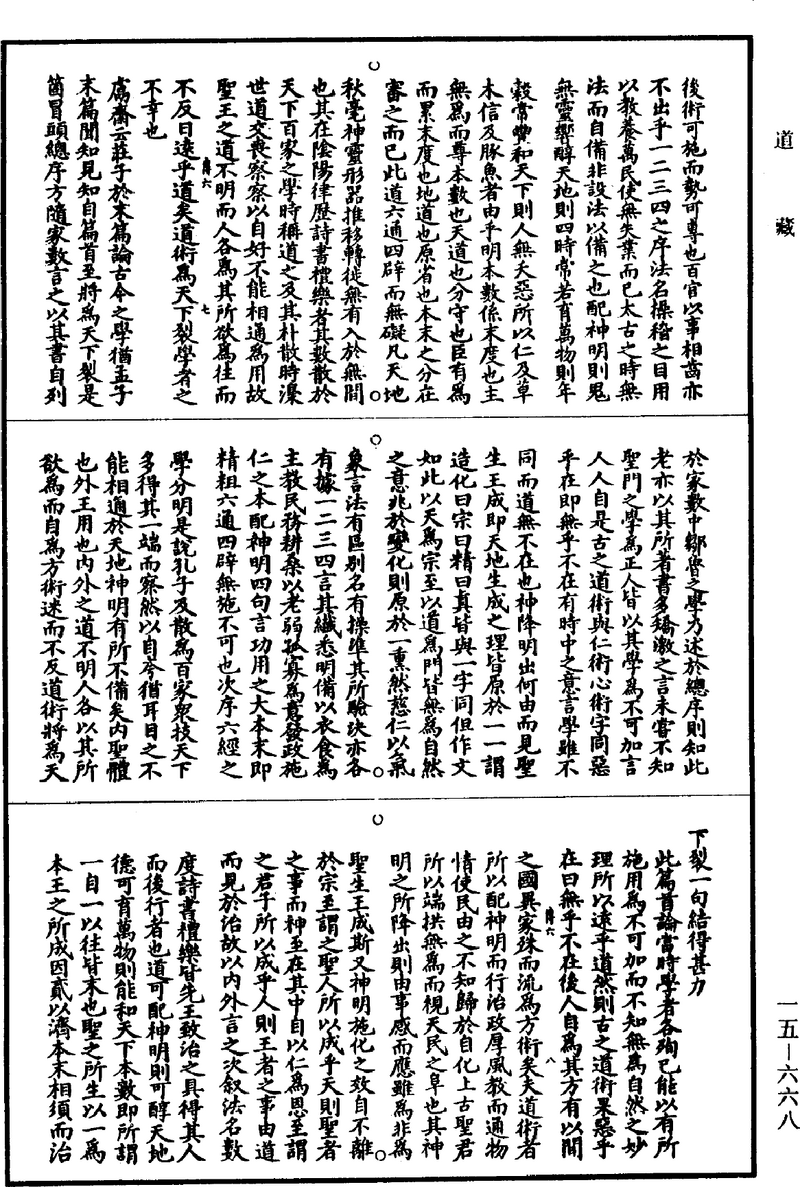 道藏
後術可施而勢可尊也百官以事相齒亦
不出乎一二三四之序法名操稽之目用
以教養萬民使無失業而已太古之時無
法而自備非設法以備之也配神明則鬼
無靈響醇天地則四時常若育萬物則年
穀常豐和天下則人無夭惡所以仁及草
木信及豚魚者由乎明本數係末度也主
無為而尊本數也天道也分守也臣有為
而累末度也地道也原省也本末之分在
審之而已此道六通四辟而無礙凡天地
秋毫神靈形器推移轉徙無有入於無間
也其在陰陽律歷詩書禮樂者其數散於
天下百家之學時稱道之及其朴散時澆
世道交喪察察以自好不能相通為用故
聖王之道不明而人各為其所欲為往而
不反日遠乎道矣道術為天下裂學者之
不幸也
鬳齋云莊子於末篇論古今之學猶孟子
末篇聞知見知自篇首至將為天下裂是
箇冒頭總序方隨家數言之以其書自列
於家數中鄒魯之學乃述於總序則知此
老亦以其所著書多矯激之言未嘗不知
聖門之學為正人皆以其學為不可加言
人人自是古之道術與仁術心術字同惡
乎在即無乎不在有時中之意言學雖不
同而道無不在也神降明出何由而見聖
生王成即天地生成之理皆原於一一謂
造化曰宗曰精曰真皆與一字同但作文
如此以天為宗至以道為門皆無為自然
之意兆於變化則原於一熏然慈仁以氣
象言法有區別名有操準其所驗決亦各
有據一二三四言其纖悉明備以衣食為
主教民務耕桑以老弱孤寡為意發政施
仁之本配神明四句言功用之大本末即
精粗六通四辟無施不可也次序六經之
學分明是說孔子及散為百家眾技天下
多得其一端而察然以自夸猶耳目之不
能相通於天地神明有所不備矣內聖體
也外王用也內外之道不明人各以其所
欲為而自為方術迷而不反道術將為天
下裂一句結得甚力
此篇首論當時學者各殉己能以有所
施用為不可加而不知無為自然之妙
理所以遠乎道然則古之道術果惡乎
在曰無乎不在後人自為其方有以間
之國異家殊而流為方術矣夫道術者
所以配神明而行治政厚風教而通物
情使民由之不知歸於自化上古聖君
所以端拱無為而視天民之阜也其神
明之所降出則由事感而應雖為非為
聖生王成斯又神明施化之效自不離
於宗至謂之聖人所以成乎天則聖者
之事而神至在其中自以仁為恩至謂
之君子所以成乎人則王者之事由道
而見於治故以內外言之次敘法名數
度詩書禮樂皆先王致治之具得其人
而後行者也道可配神明則可醇天地
德可育萬物則能和天下本數即所謂
一自一以往皆末也聖之所生以一為
本王之所成因貳以濟本末相須而治
一五—六六八